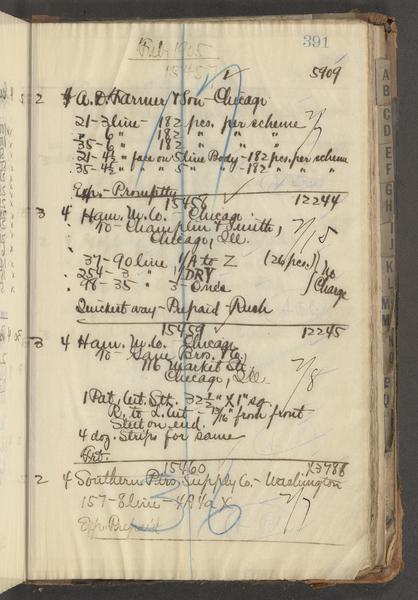 391
Feb. 1905
15457
1 5909
2 4 A. D. Farmer & Son - Chicago
21-3 line - 182 pcs. per scheme
" - 6 " 182 " " "
35-6 " 182 " " "
21-4½ " face on 5 line Body - 182 pcs. per scheme
35-4½ " " 5 " " - 182 " " "
Exp. - Promptly
15458 12244
3 4 Ham. M. Co. - Chicago
To - Champlin & Smith,
Chicago, Ill.
7/8
37-90 line 1/A to Z (26 pcs.) No
254-3 " 1/DRY Charge
98-35 " 3-Ones
Quickest way - Prepaid - Rush
15459 12245
3 4 Ham. M. Co. - Chicago
To - Bros. Co.,
116 Market St.
Chicago, Ill.
7/8
1 Pat. Cut. Stk. 32½" X 1" sq.
R. to L. Cut - 13/16" from front
Slut on end.
4 doz. Strips for same
15460 X3788
2 4 Southern Ptrs Supply Co. - Washington
157-8 line - 4A 4a X 7/7
Exp. Prepaid
36
A
B
C
D
E
F
G
H
K
L
M